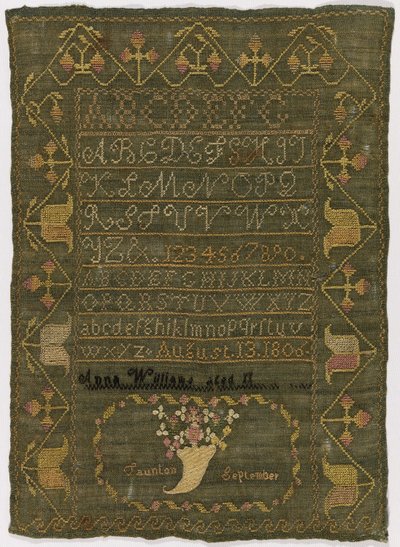 ABCDEFG
ABCDEFGHIJ
KLMNOPQ
RSTUVWX
YZ&. 1234567890.
ABCDEFGHIJKLMN
OPQRSTUVWXYZ
abcdefghiklmnopqrstuv
wxyz. August.13.1806
Anna Williams aged
Taunton September